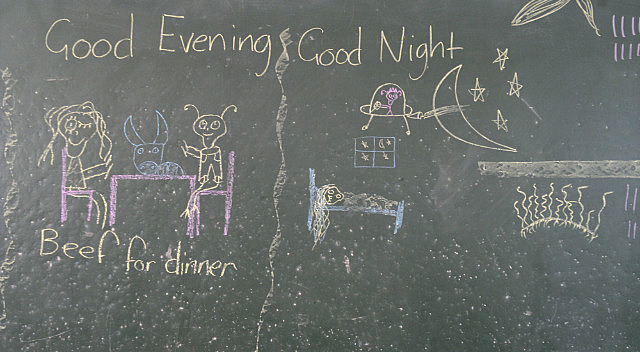 Good Evening
Good Night
Beef for dinner